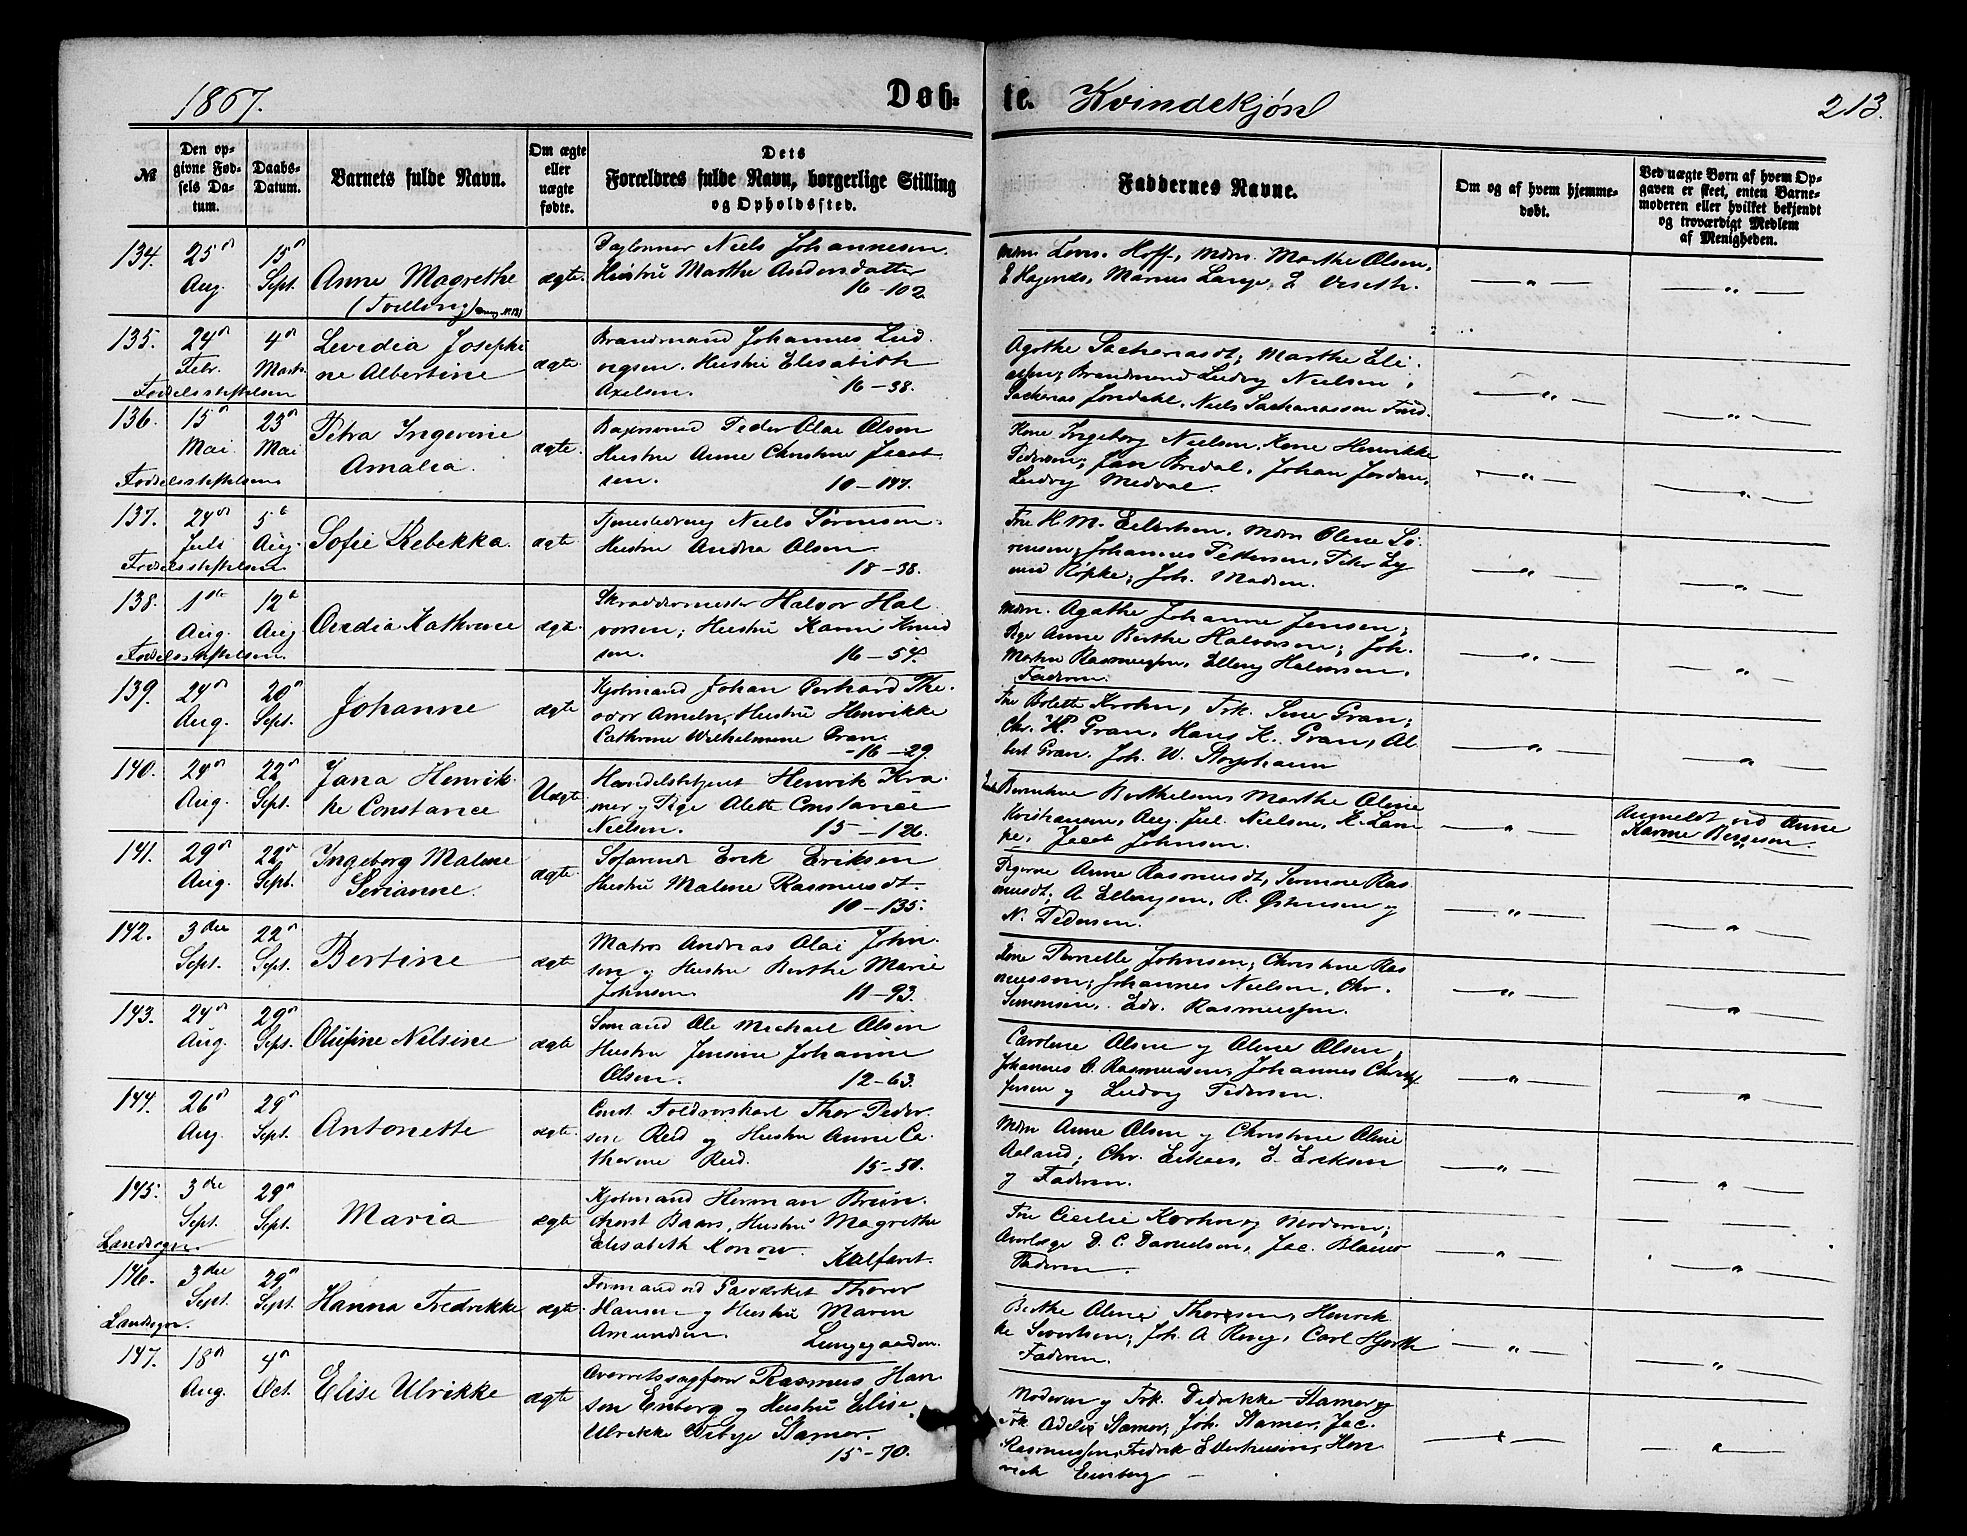 1867.
Døb-
te.
Kvindekjøn
213.
№
Den op-
givne Fød-
sels Da-
tum.
Daabs-
Datum.
Barnets fulde Navn.
Om ægte
eller
uægte
fødte.
Dets
Forældres fulde Navn, borgerlige Stilling
og Opholdssted.
Faddernes Navne.
Om og af hvem hjemme-
døbt.
Ved uægte Børn af hvem Op-
gaven er skeet, enten Barne-
moderen eller hvilket bekjendt
og troværdigt Medlem
af Menigheden.
134.
25
Aug.
15
Sept.
Anne Magrethe
(Tvilling)
ægte.
Daglønner Niels Johannesen
Hustru Marthe Andersdatter
16-102
Hoff, Mdm. Marthe Olsen,
Marius Lange,
135.
24
Febr.
4
Marts
Fødselsstiftelsen
Levidia Josephi
ne Albertine
ægte
Brandmand Johannes Lud
vigsen. Hustru Elisabeth
Axelsen.
16-38.
Agathe Marthe Eli
Brandmand Ludvig Nielsen,
136.
15
Mai
23
Mai
Fødselsstiftelsen
Petra Ingevine
Amalia.
ægte.
Peder Olai Olsen
Hustru Anne Christine Jacob
sen.
10-147.
Kone Ingeborg Nielsen, Kone Henrikke
Pedersen, Jan Bredal, Johan Jordan,
Ludvig
137.
24
Juli
5
Aug.
Fødselsstiftelsen
Sofie Rebekka.
ægte
Niels Sørensen
Hustru Andrea Olsen
18-38.
Fru H. M. Eilertsen, Mdm Oline Sø-
rensen, Johannes Pettersen,
Joh. Madsen.
138.
1
Aug.
12
Aug
Fødselsstiftelsen
Ovidia Kathrine
ægte.
Skræddermester Halvor Hal
vorsen; Hustru Kari Knud
sen.
16-54.
Mdm. Agathe Johanne Jensen;
Pige Anne Berthe Halvorsen; Joh.
Martin Rasmussen, Ellert Halvorsen,
Faderen.
139.
24
Aug.
20
Sept.
Johanne
ægte
Kjøbmand Johan Gerhard The-
odor Ameln, Hustru Henrikke
Cathrine Wilhelmine Gran
16-29.
Fru Bolette Krohn, Frk. Sine Gran;
Chr. K. Gran, Hans K. Gran, Al
bert Gran. Joh. W.
140.
24
Aug.
22
Sept.
Jana Henrik-
ke Constance
Uægte
Handelsbetjent Henrik Kra-
mer og Pige Alette Constance
Nielsen.
15-126.
Marthe Oline
Kristiansen, Aug. Jul. Nielsen,
Jacob Johnsen.
Anmeldt ved Anne
Karine
141.
29
Aug.
22
Sept.
Ingeborg Malene
Serianne.
ægte
Søfarende Erik Eriksen
Hustru Malene Rasmusdt.
10-135.
Pigerne Anne Rasmusdt, Serine Ras-
musdt; A. Ellingsen, R. Østensen og
N. Pedersen.
142.
3die
Sept.
22
Sept.
Bertine
ægte
Matros Andreas Olai John-
sen og Hustru Berthe Marie
Johnsen
11-93.
Kone Pernille Johnsen; Christine Ras
mussen; Johannes Nielsen, Chr.
Simonsen, Edv. Rasmussen.
143.
24
Aug.
29
Sept.
Olufine Nilsine
ægte
Sømand Ole Michael Olsen
Hustru Jensine Johanne
Olsen.
12-63.
Caroline Olsen og Oline Olsen,
Johannes O. Rasmussen, Johannes Christof
fersen og Ludvig Pedersen.
144.
26
Aug.
29
Sept.
Antonette
ægte.
Const. Toldrorskarl Thor Peder-
sen Reid og Hustru Anne Ca-
tharine Reid.
15-50.
Mdm Anne Olsen og Christine Oline
Aaland; Chr. E. Eriksen
og Faderen.
145.
3die
Sept.
29
Sept.
Landsogn
Maria
ægte
Kjøbmand Herman Brun-
chorst Baars, Hustru Magrethe
Elisabeth Konow.
Kalfaret.
Fru Cecilie Krohn og Moderen;
Overlæge D. C. Danielsen, Jac.
Faderen.
146.
3die
Sept.
29
Sept.
Landsogn.
Hanna Fredrikke
ægte.
Formand ved Gasværket Thorer
Hansen og Hustru Maren
Amundsen.
Lungegaarden.
Berthe Oline Thorsen, Henrik-
ke Sivertsen; Joh. A. Carl Hjorth
Faderen.
147.
18
Aug.
4
Oct.
Elise Ulrikke
ægte
Overretssagfører Rasmus Han
sen Enberg og Hustru Elise
Ulrikke Stamer.
15-70.
Moderen og Frk. Didrikke Stamer og
Frk. Adelis Stamer, Joh. Stamer, Jac.
Rasmussen, Fredrik Ellerhusen, Hen